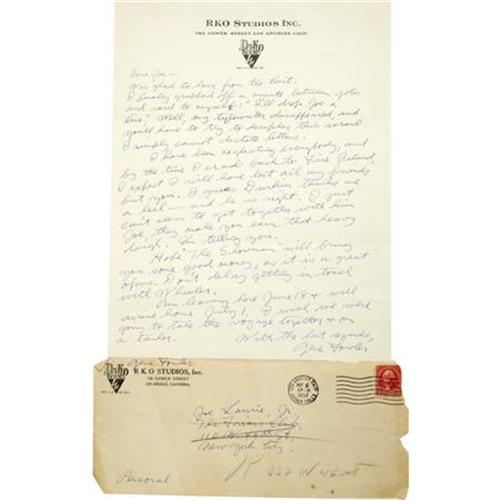 RKO STUDIOS INC.
780 GOWER STREET LOS ANGELES, CALIF.
Dear Joe—
Was glad to hear from the
I finally grabbed off a minute between jobs
and said to myself: "I'll drop Joe a
line" Well, my typewriter disappeared, and
you'll have to try to decipher this scrawl.
I simply cannot dictate letters.
I have been neglecting everybody, and
by the time I crawl back to Fire Island,
I expect I will have lost all my friends
but you. I guess thinks me
a heel — and he is right. I just
can't seem to get together with him
Joe, they make you earn that heavy
dough. I'm telling you.
Hope "The Showman" will bring
you some good money, as it is a great
opus. Don't delay getting in touch
with Wheeler.
Am leaving here June 18 & will
arrive home July 1. I wish we were
going to take the voyage together & on
a tanker.
With the best regards,
Gene Fowler
Gene Fowler
RKO STUDIOS, Inc.
780 GOWER STREET
LOS ANGELES, CALIFORNIA
Joe Laurie, Jr.
The Friars Club,
New York City.
332 W 46 st
Personal